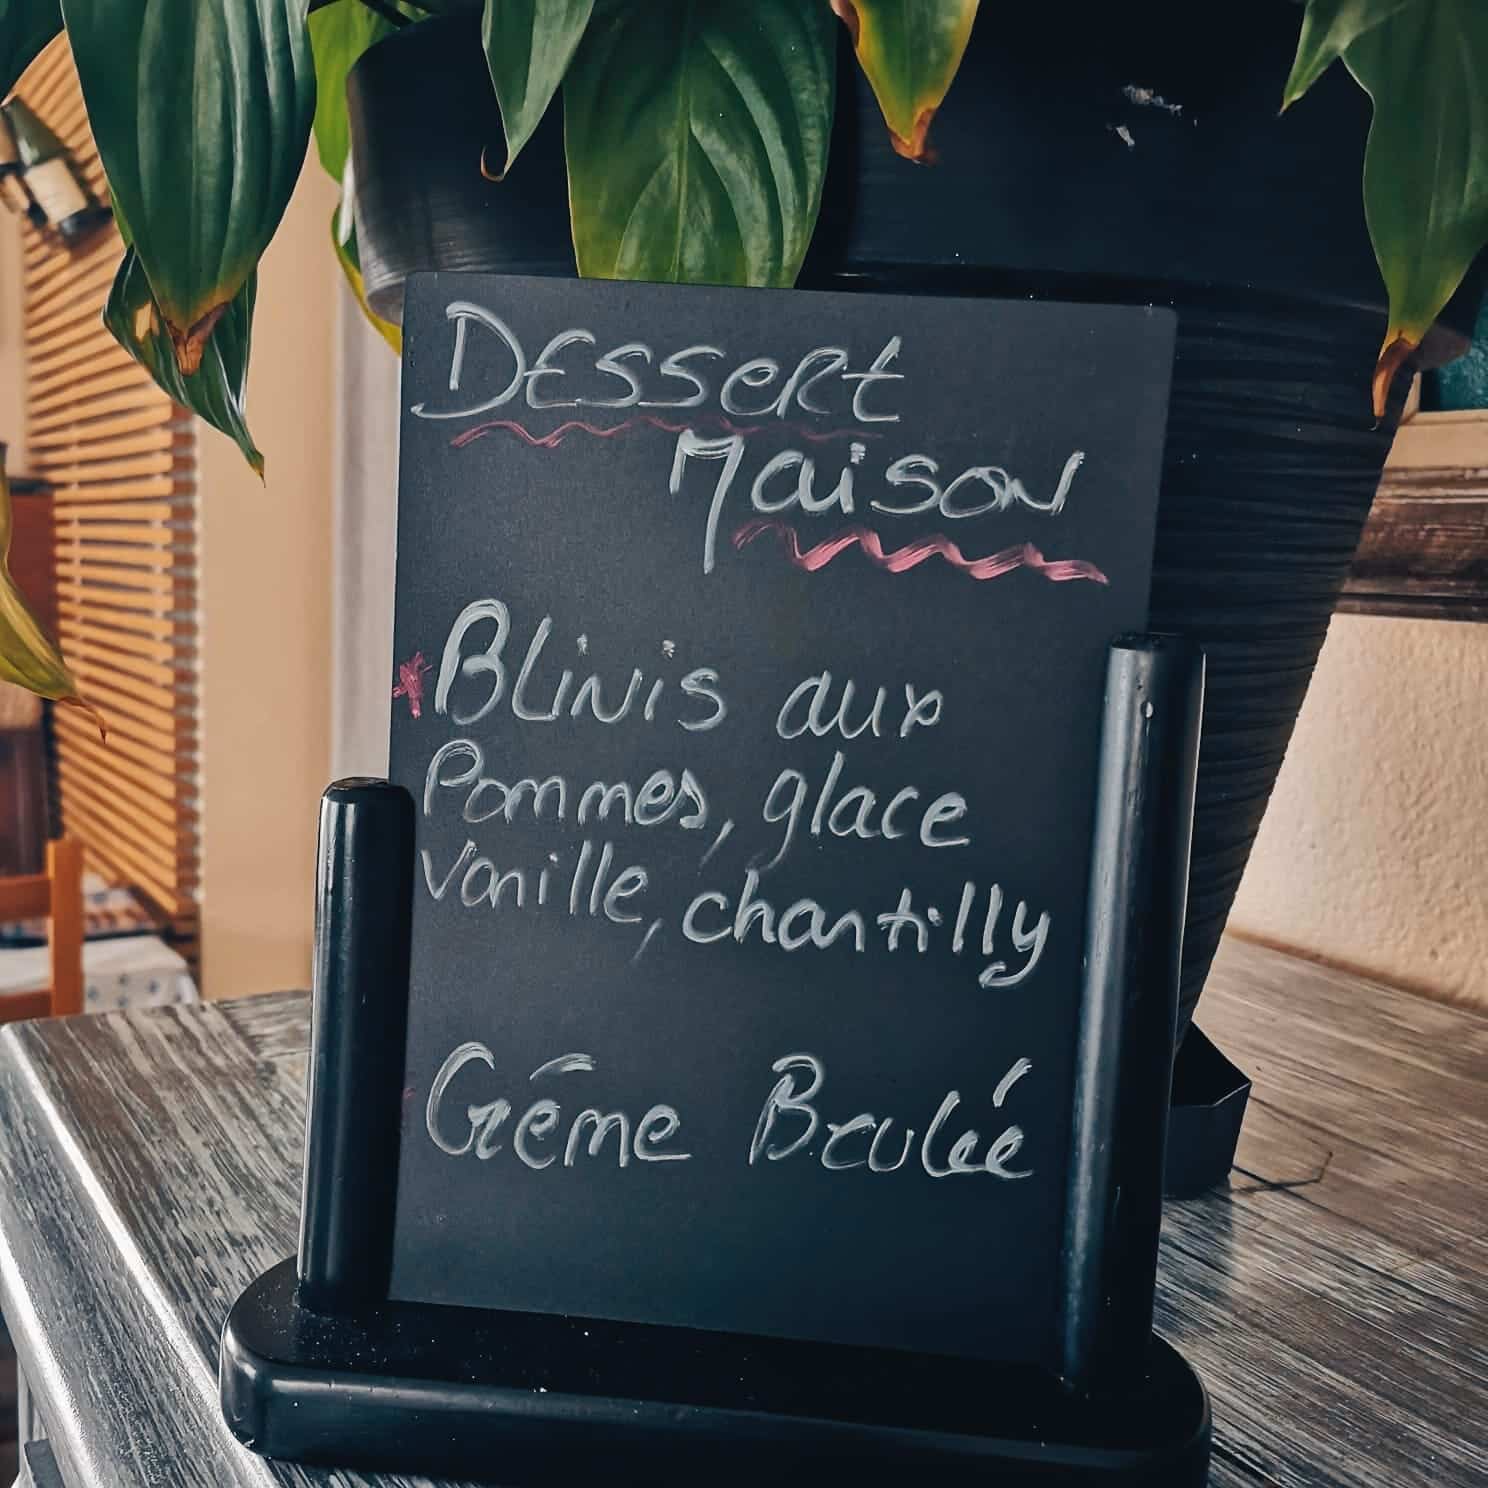 Dessert
Maison
* Blinis aux
Pommes, glace
Vanille, chantilly
Créme Brulée